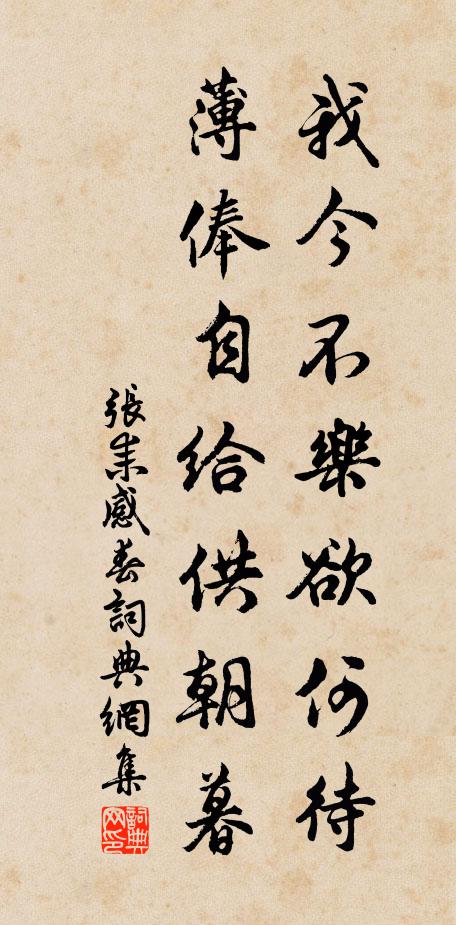 我今不樂欲何待
薄俸自給供朝暮
張耒感春詞典網集
詞典网印